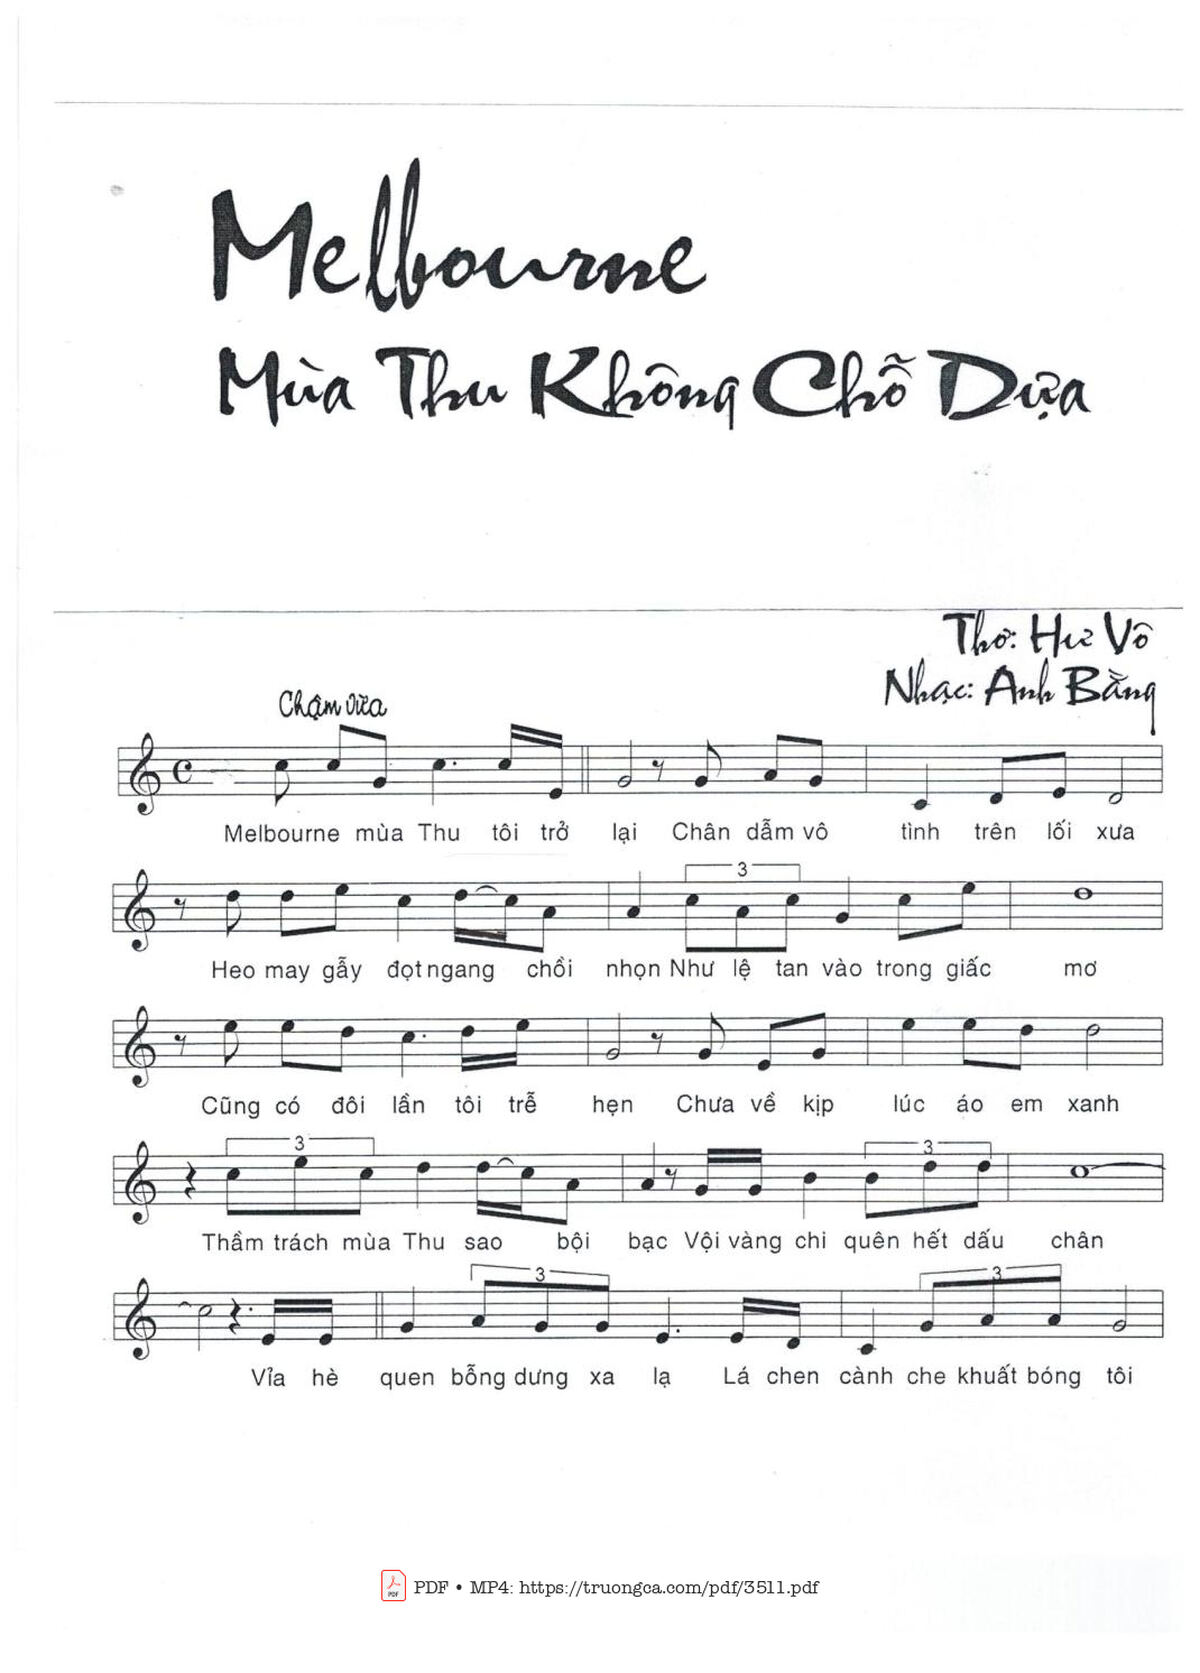 Melbourne
Mùa Thu Không Chỗ Dựa
Thơ: Hư Vô
Nhạc: Anh Bằng
Chậm vừa
Melbourne mùa Thu tôi trở lại Chân dẫm vô tình trên lối xưa
3
Heo may gẫy đọt ngang chồi nhọn Như lệ tan vào trong giấc mơ
Cũng có đôi lần tôi trễ hẹn Chưa về kịp lúc áo em xanh
3 3
Thầm trách mùa Thu sao bội bạc Vội vàng chi quên hết dấu chân
3 3
Vỉa hè quen bỗng dưng xa lạ Lá chen cành che khuất bóng tôi
PDF • MP4: https://truongca.com/pdf/3511.pdf